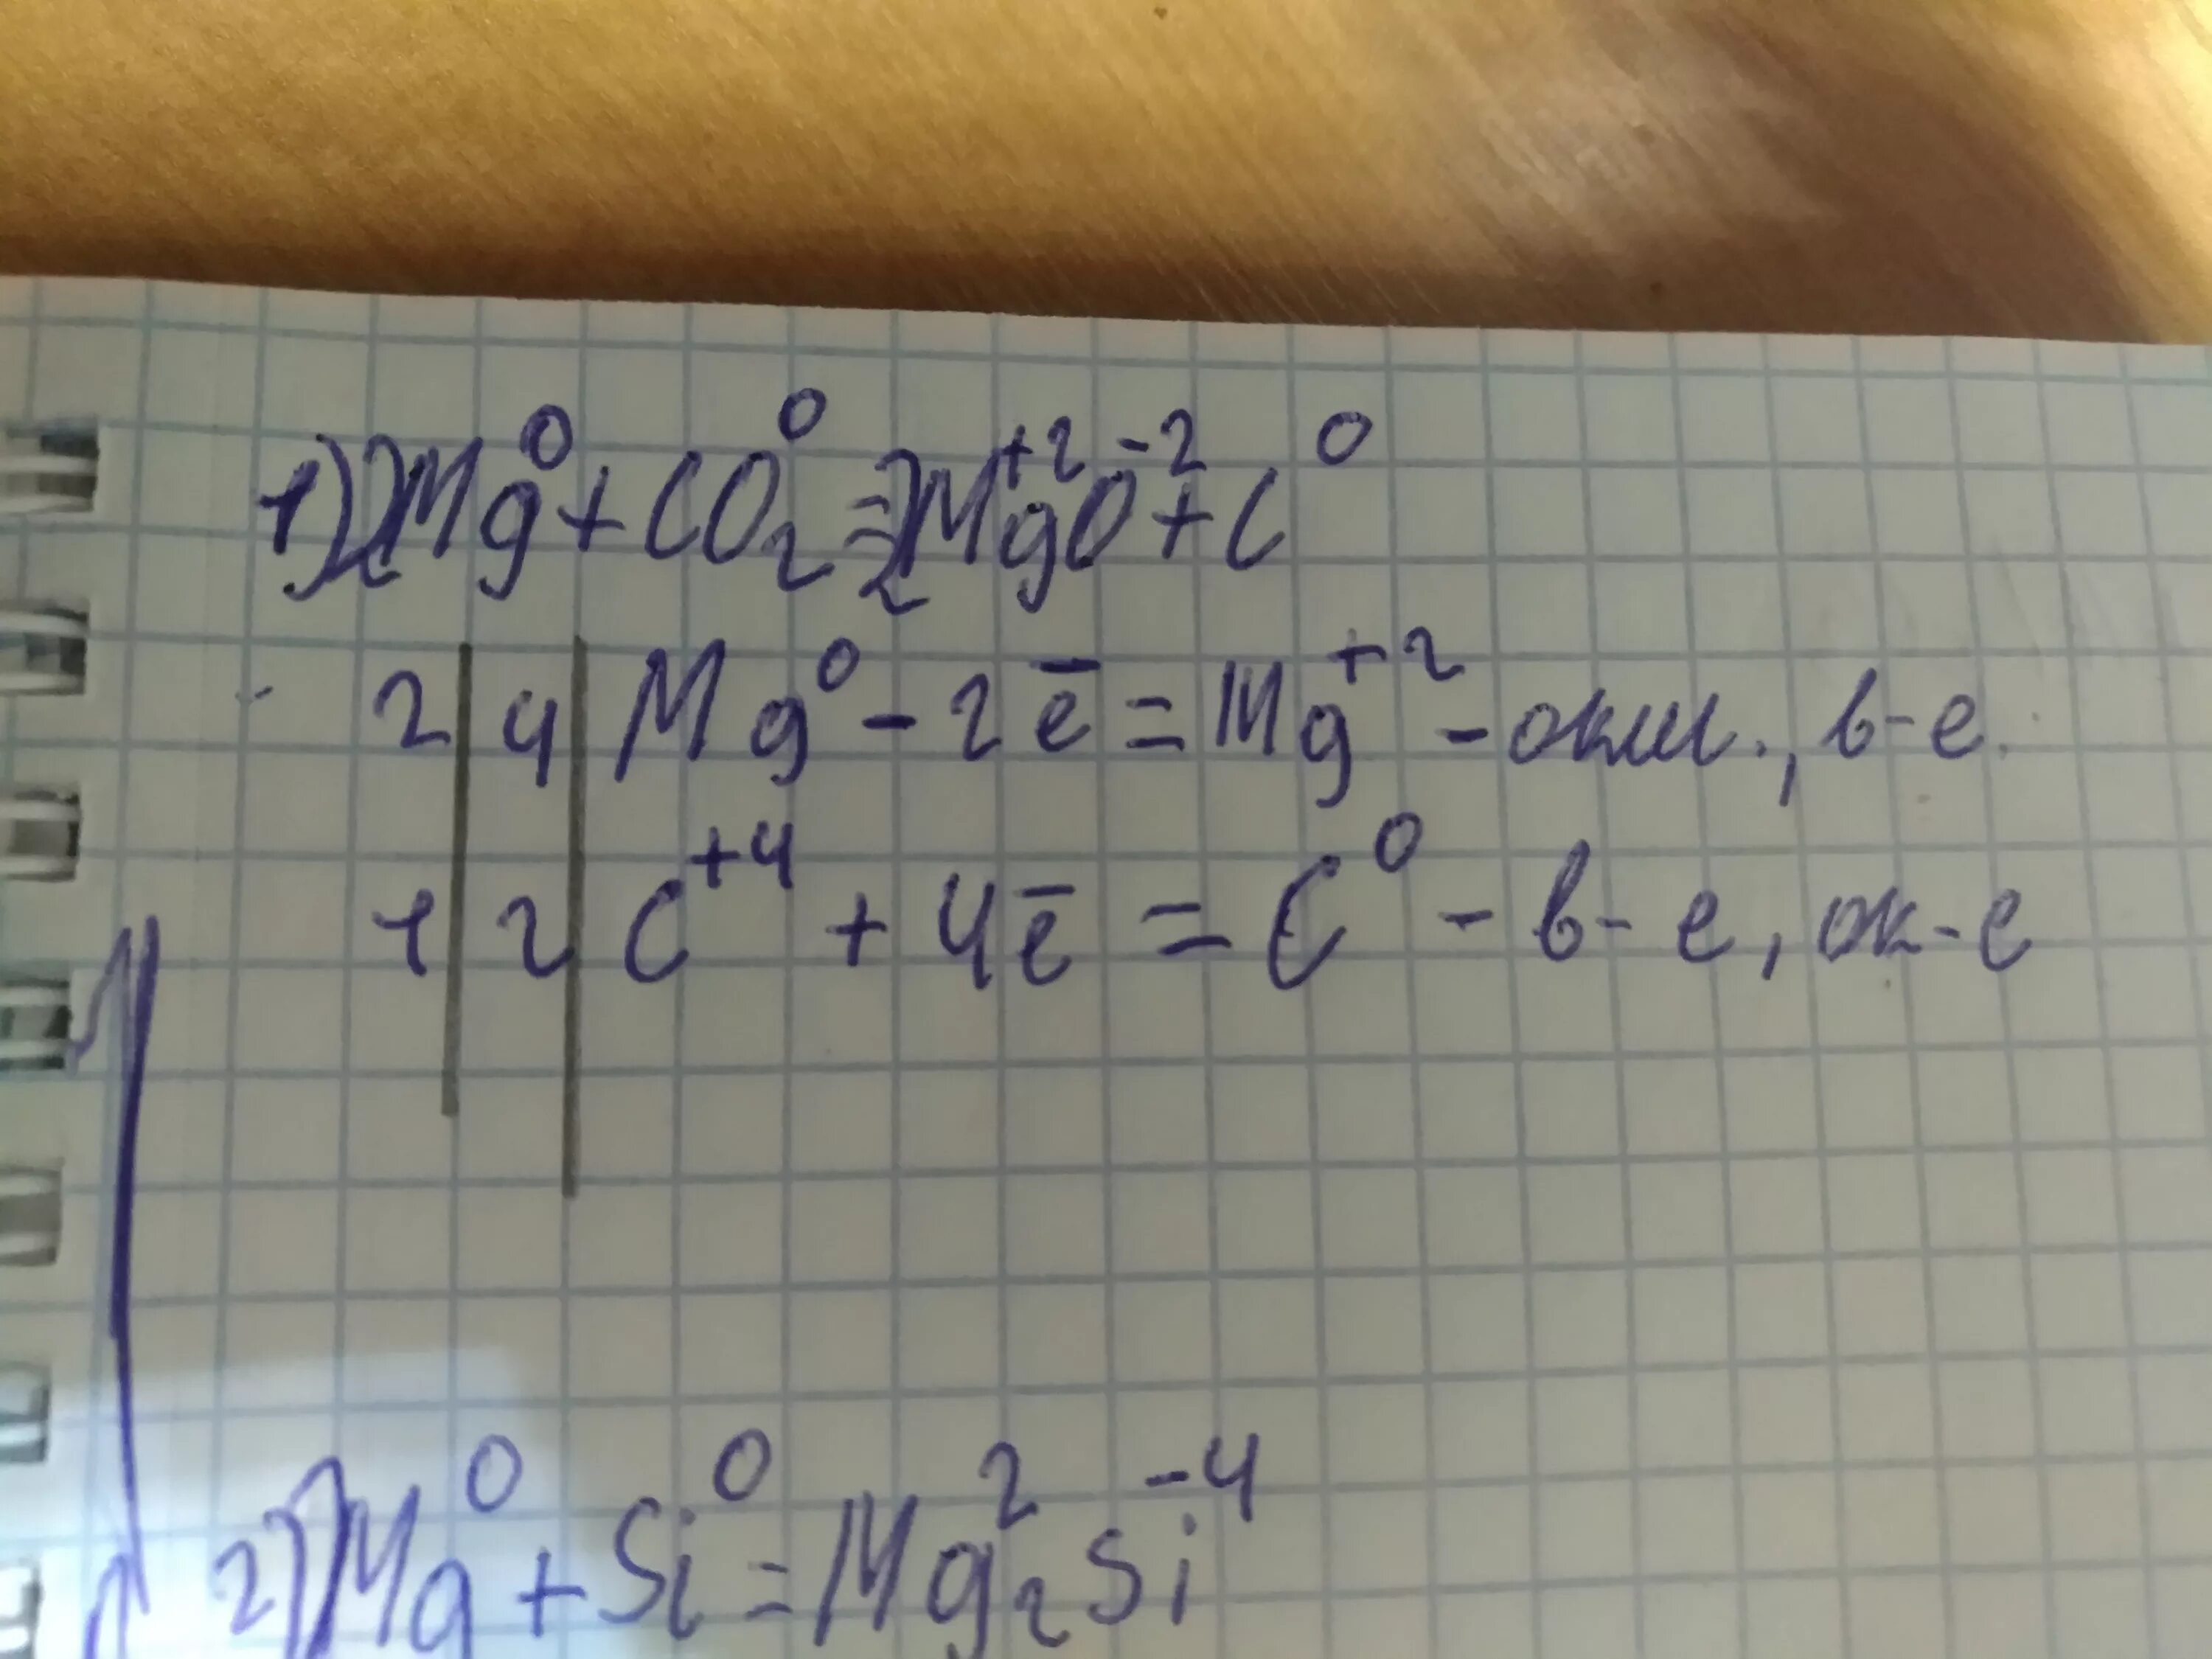 1) 2Mg⁰ + CO₂⁰ = 2Mg⁺²O⁻² + C⁰
2 | 4 | Mg⁰ - 2e̅ = Mg⁺² - окис., в-е.
1 | 2 | C⁺⁴ + 4e̅ = C⁰ - в-е, ок-е
2) 2Mg⁰ + Si⁰ = Mg₂²Si⁻⁴